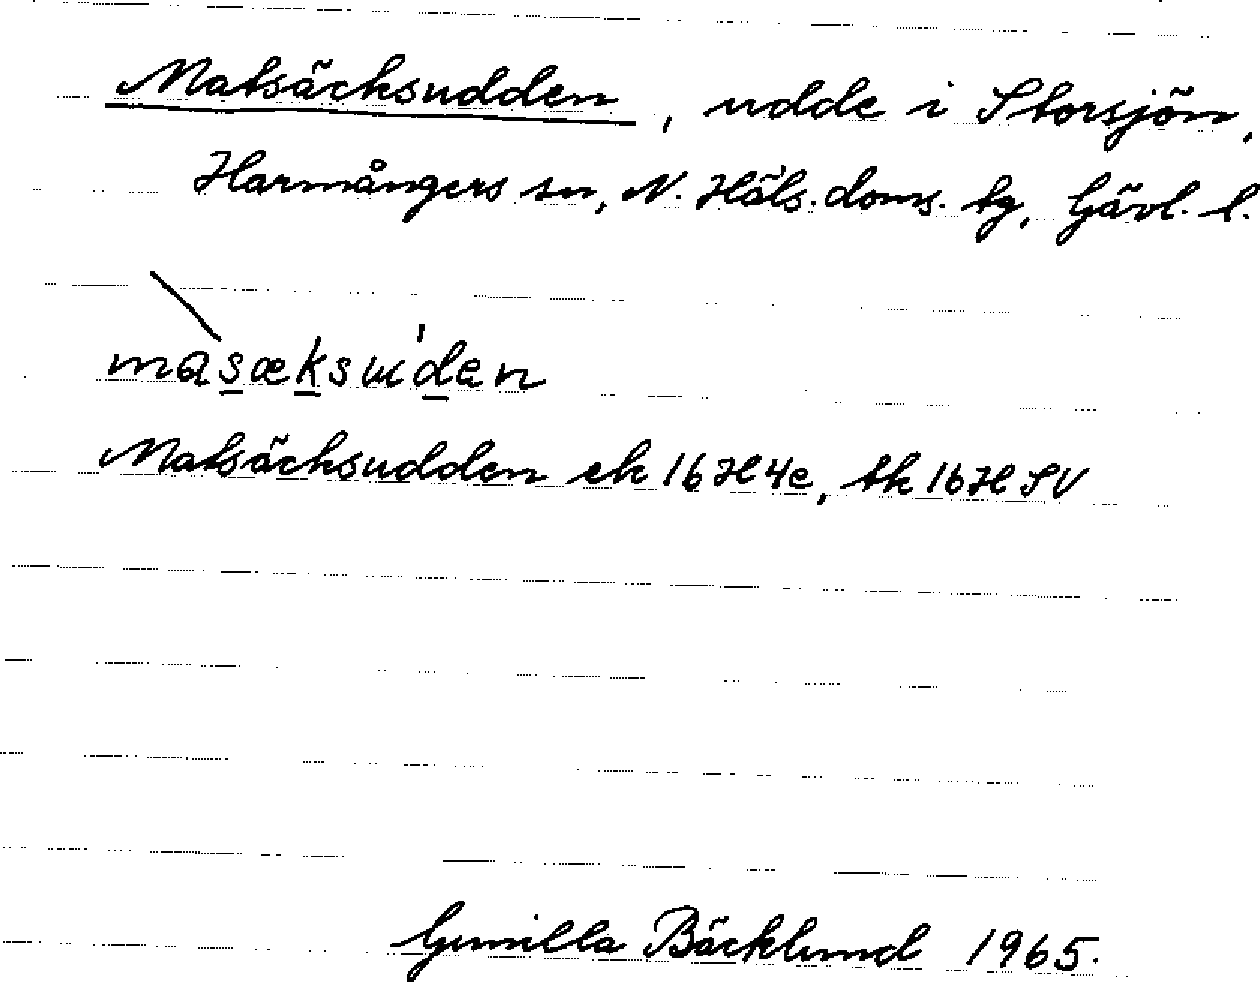 Matsäcksudden, udde i Storsjön,
Harmångers sn, N. Häls. doms. tg, Gävl. l.
masæksuden
Matsäcksudden ek 16H4e, tk 16H SV
Gunilla Bäcklund 1965.